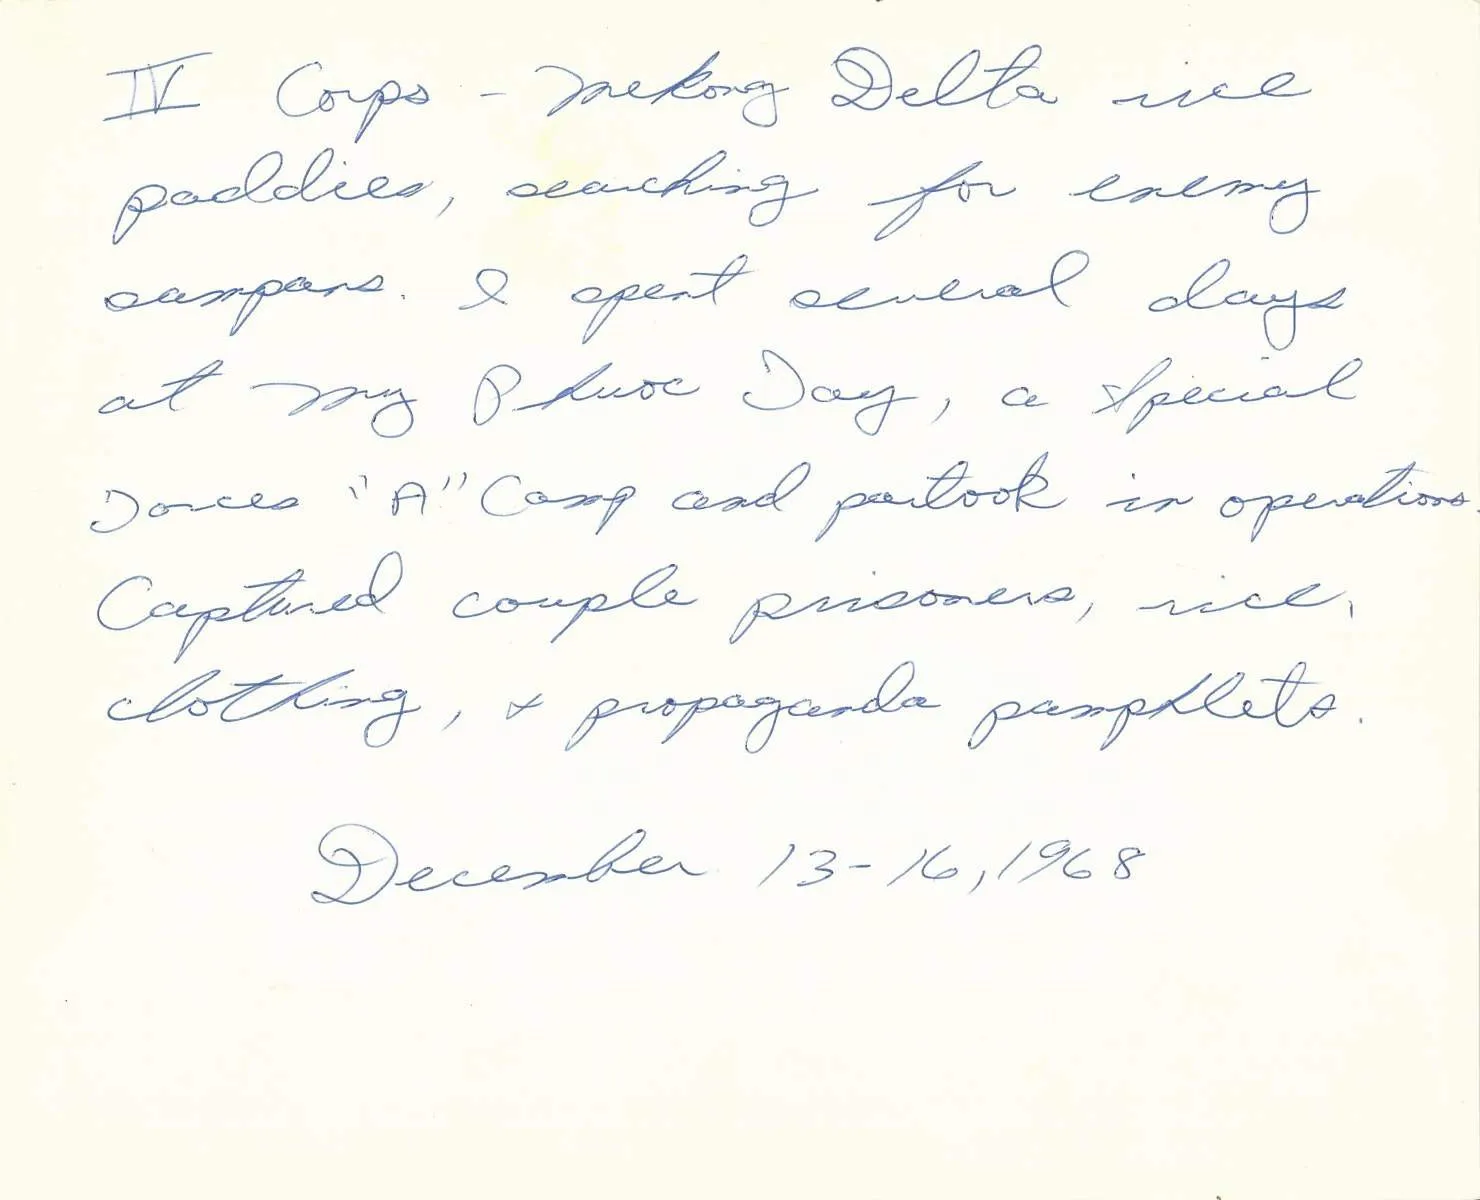 IV Corps - Mekong Delta rice
paddies, searching for enemy
sampans. I spent several days
at My Phuoc Tay, a Special
Forces "A" Camp and partook in operations.
Captured couple prisoners, rice,
clothing, & propaganda pamphlets.
December 13-16, 1968